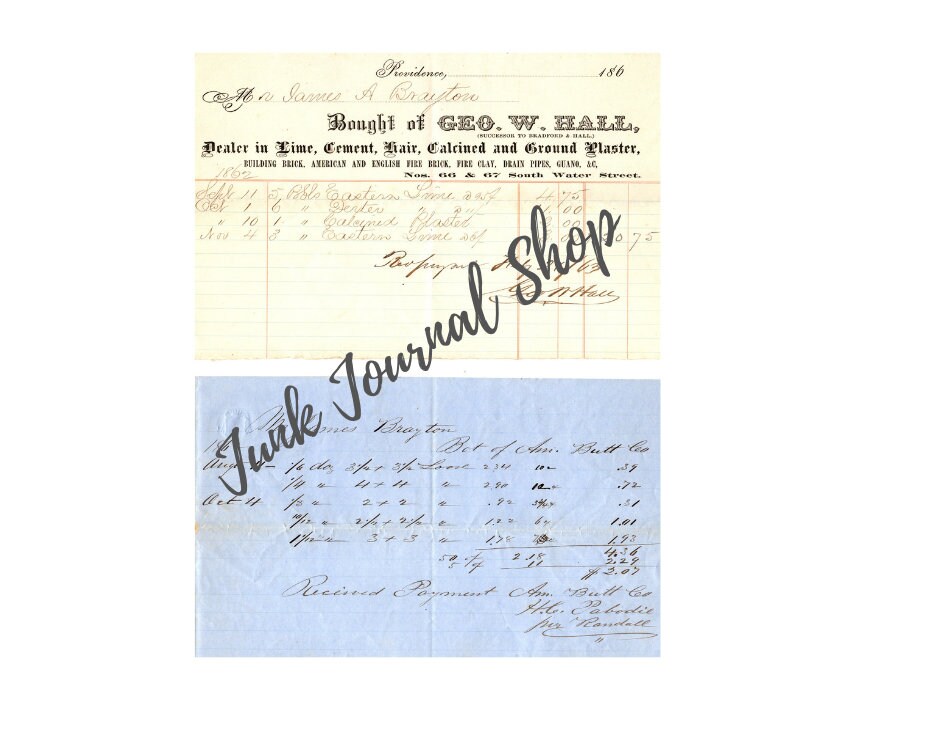 Providence, 186
Mr James A Brayton
Bought of GEO. W. HALL,
(SUCCESSOR TO BRADFORD & HALL.)
Dealer in Lime, Cement, Hair, Calcined and Ground Plaster,
BUILDING BRICK, AMERICAN AND ENGLISH FIRE BRICK, FIRE CLAY, DRAIN PIPES, GUANO, &C,
1862 Nos. 66 & 67 South Water Street.
Sept 11 5 Bbls Eastern Lime 4 75
Oct 1 6 " " 00
" 10 1 " Calcined Plaster 00
Nov 4 3 " Eastern Lime 30 75
Rec payment 63
Geo W Hall
Junk Journal Shop
James Brayton
Bot of Am. Butt Co
Aug 1/6 doz 3 1/2 + 3 1/2 Loose 234 10 .39
1/4 " 4 + 4 " 290 12 .72
Oct 4 1/3 " 2 + 2 " .92 .31
10/12 " 2 1/2 + 2 1/2 " 1.22 64 1.01
11/12 " 3 + 3 " 1.78 1.93
50 % 2.18 4.36
5 % 11 2.29
$ 2.07
Recieved Payment Am. Butt Co
H.C. Pabodie
per Randall
"